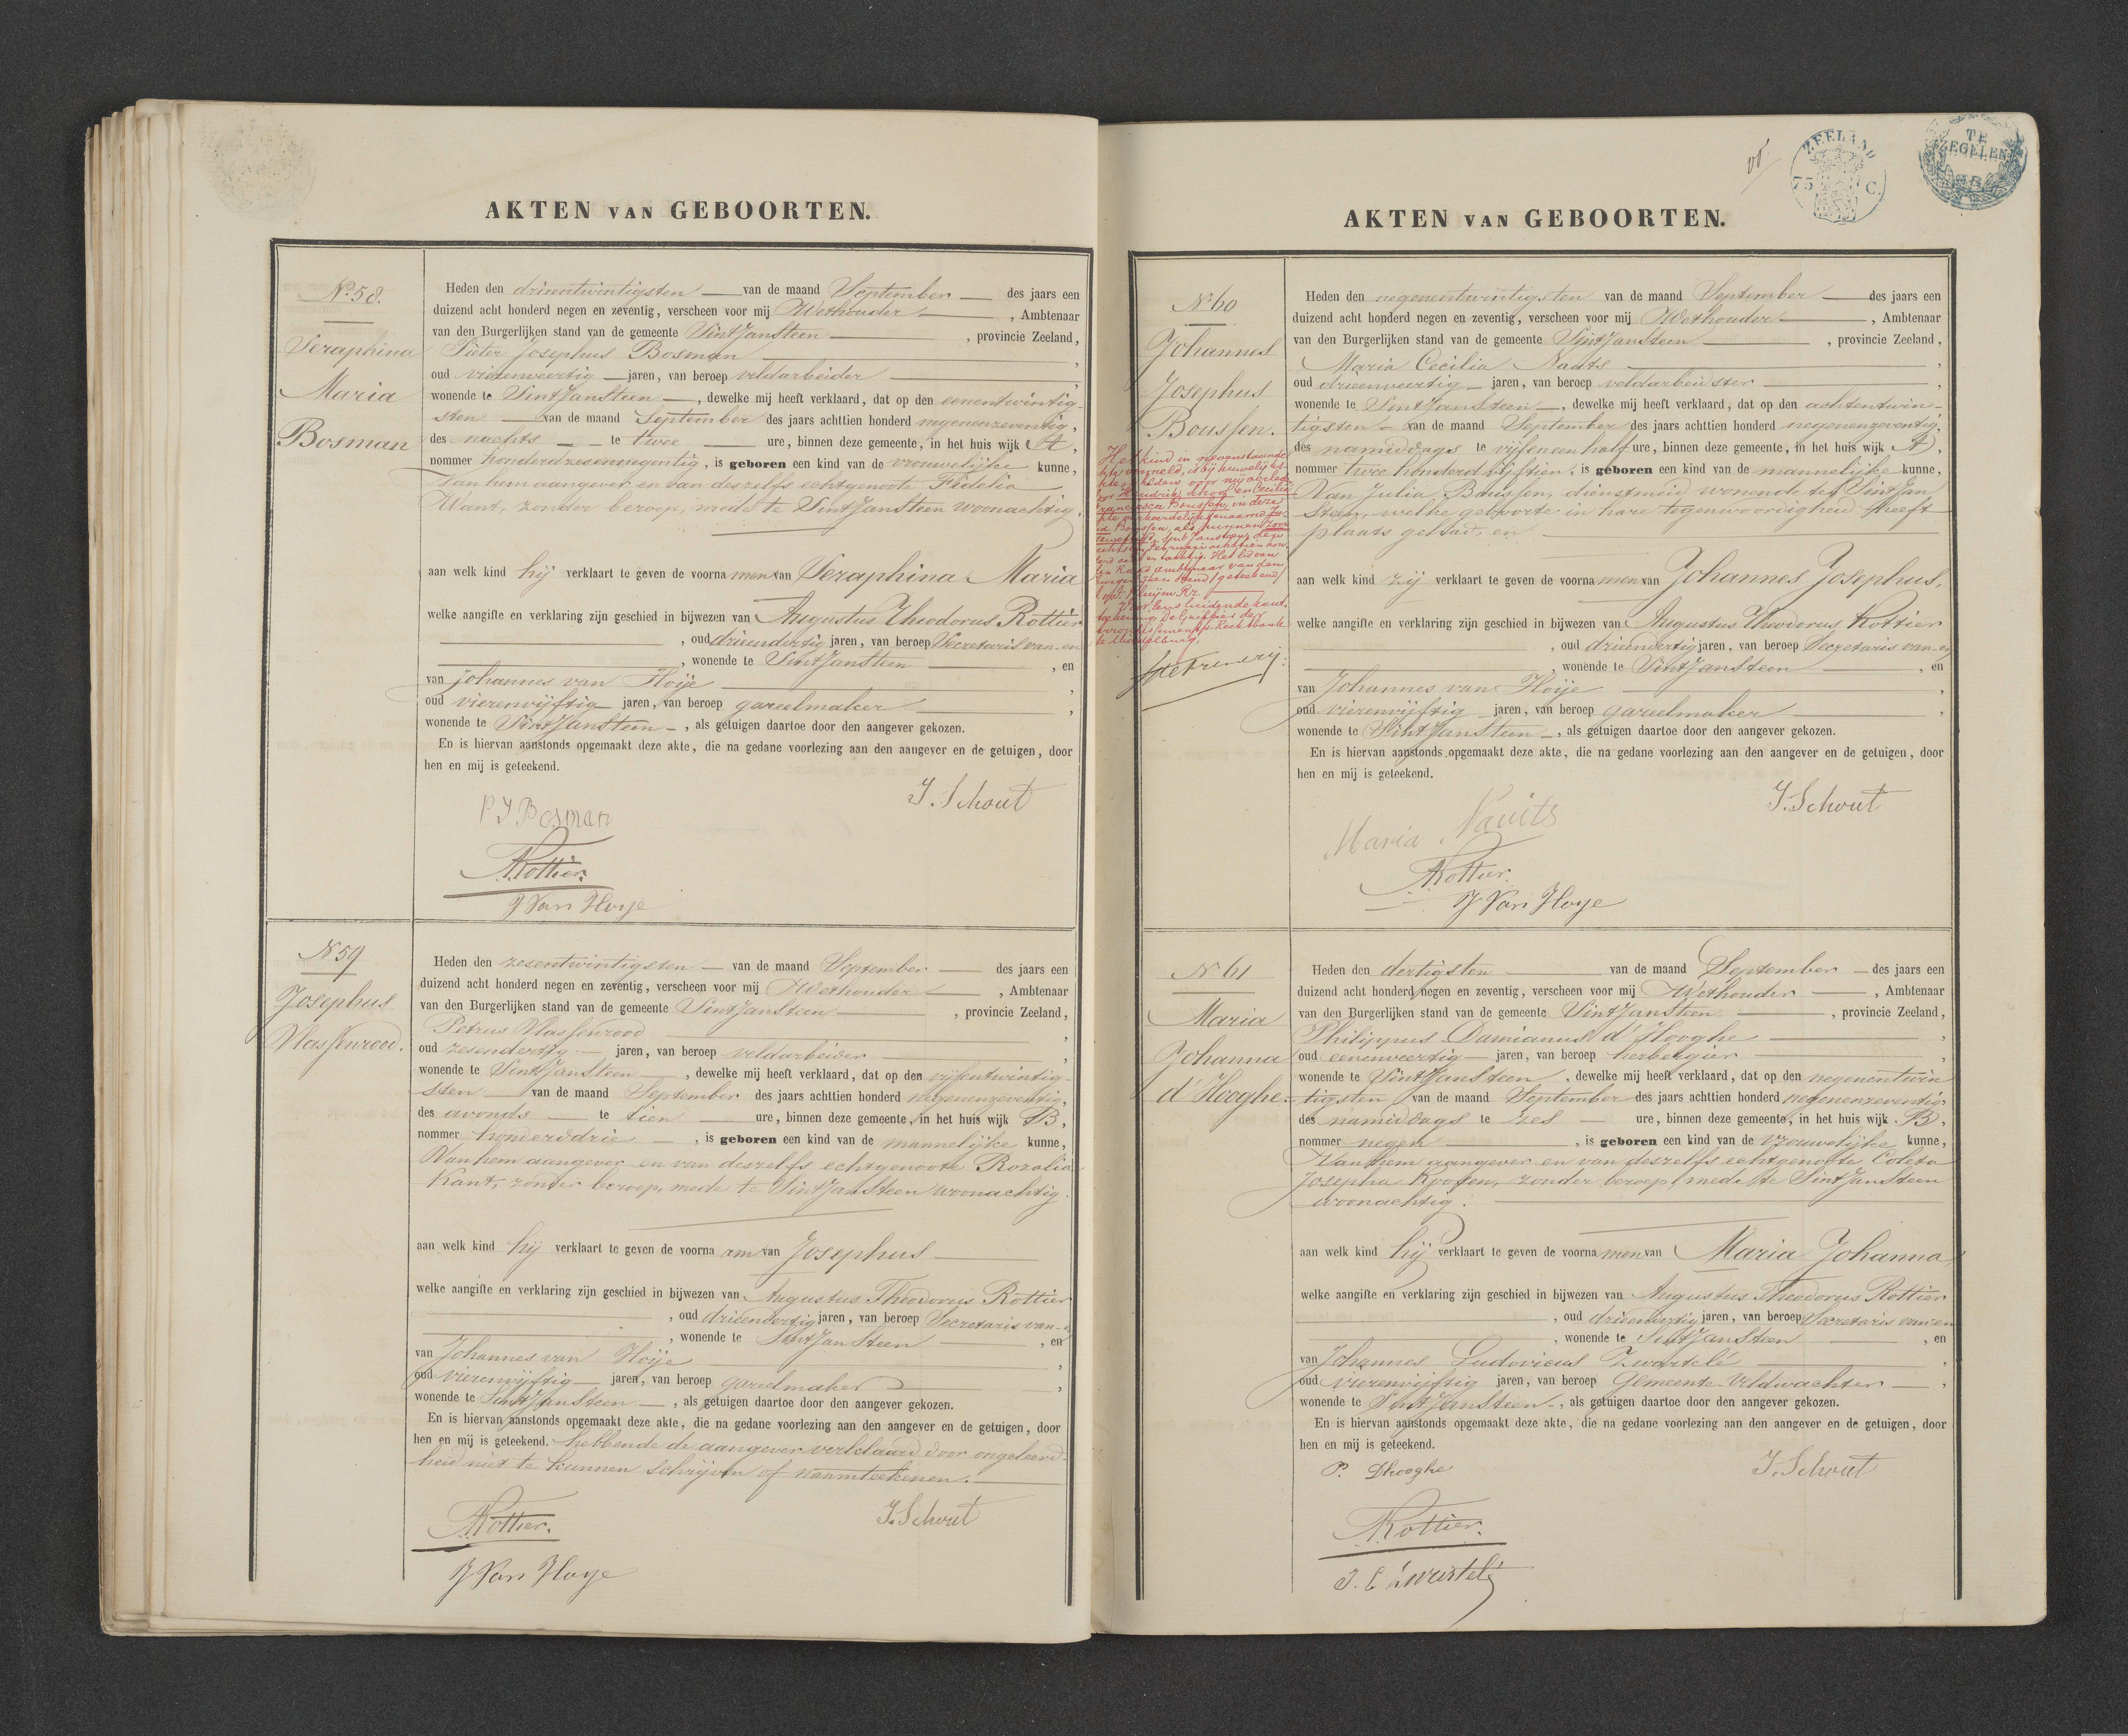 AKTEN VAN GEBOORTEN.
No. 58.
Seraphina
Maria
Bosman
Heden den drieentwintigsten van de maand September des jaars een
duizend acht honderd negen en zeventig, verscheen voor mij Wethouder, Ambtenaar
van den Burgerlijken stand van de gemeente Sint Jansteen, provincie Zeeland,
Pieter Josephus Bosman,
oud vierenveertig jaren, van beroep veldarbeider,
wonende te Sint Jansteen, dewelke mij heeft verklaard, dat op den eenentwintig-
sten van de maand September des jaars achttien honderd negenenzeventig,
des nachts te twee ure, binnen deze gemeente, in het huis wijk A,
nommer honderdzesennegentig, is geboren een kind van de vrouwelijke kunne,
Van hem aangever en van deszelfs echtgenoote Fidelia
Want, zonder beroep, mede te Sint Jansteen woonachtig.
aan welk kind hij verklaart te geven de voornamen van Seraphina Maria
welke aangifte en verklaring zijn geschied in bijwezen van Augustus Theodorus Rottier
, oud drieendertig jaren, van beroep Secretaris van en
, wonende te Sint Jansteen, en
van Johannes van Hoije,
oud vierenvijftig jaren, van beroep gareelmaker,
wonende te Sint Jansteen, als getuigen daartoe door den aangever gekozen.
En is hiervan aanstonds opgemaakt deze akte, die na gedane voorlezing aan den aangever en de getuigen, door
hen en mij is geteekend.
J. Schout
P J Bosman
A. Rottier.
J Van Hoye
No 59
Josephus
Vlassenrood.
Heden den zesentwintigsten van de maand September des jaars een
duizend acht honderd negen en zeventig, verscheen voor mij Wethouder, Ambtenaar
van den Burgerlijken stand van de gemeente Sint Jansteen, provincie Zeeland,
Petrus Vlassenrood,
oud zesendertig jaren, van beroep veldarbeider,
wonende te Sint Jansteen, dewelke mij heeft verklaard, dat op den vijfentwintig-
sten van de maand September des jaars achttien honderd negenenzeventig,
des avonds te tien ure, binnen deze gemeente, in het huis wijk B,
nommer honderddrie, is geboren een kind van de mannelijke kunne,
Van hem aangever en van deszelfs echtgenoote Rozalia
Kant, zonder beroep, mede te Sint Jansteen woonachtig.
aan welk kind hij verklaart te geven de voornaam van Josephus
welke aangifte en verklaring zijn geschied in bijwezen van Augustus Theodorus Rottier
, oud drieendertig jaren, van beroep Secretaris van en
, wonende te Sint Jan Steen, en
van Johannes van Hoije,
oud vierenvijftig jaren, van beroep gareelmaker,
wonende te Sint Jansteen, als getuigen daartoe door den aangever gekozen.
En is hiervan aanstonds opgemaakt deze akte, die na gedane voorlezing aan den aangever en de getuigen, door
hen en mij is geteekend. hebbende de aangever verklaard door ongeleerd-
heid niet te kunnen schrijven of naamteekenen.
A. Rottier. J. Schout
J Van Hoye
ZEELAND
75 C.
TE
ZEGELEN
AKTEN VAN GEBOORTEN.
No 60
Johannes
Josephus
Boussen.
Het kind in nevenstaande
akte vermeld, is bij huwelijks-
Burgerlijken Stand (geteekend)
te Middelburg,
Heden den negenentwintigsten van de maand September des jaars een
duizend acht honderd negen en zeventig, verscheen voor mij Wethouder, Ambtenaar
van den Burgerlijken stand van de gemeente Sint Jansteen, provincie Zeeland,
Maria Cecilia Nauts,
oud drieenveertig jaren, van beroep veldarbeidster
wonende te Sint Jansteen, dewelke mij heeft verklaard, dat op den achtentwin-
tigsten van de maand September des jaars achttien honderd negenenzeventig,
des namiddags te vijfeneenhalf ure, binnen deze gemeente, in het huis wijk A,
nommer twee honderd vijftien, is geboren een kind van de mannelijke kunne,
Van Julia Boussen, dienstmeid wonende te Sint Jan
Steen, welke geboorte in hare tegenwoordigheid heeft
plaats gehad, en
aan welk kind zij verklaart te geven de voornamen van Johannes Josephus,
welke aangifte en verklaring zijn geschied in bijwezen van Augustus Theodorus Rottier
, oud drieendertig jaren, van beroep Secretaris van en
, wonende te Sint Jansteen, en
van Johannes van Hoije,
oud vierenvijftig jaren, van beroep gareelmaker,
wonende te Sint Jansteen, als getuigen daartoe door den aangever gekozen.
En is hiervan aanstonds opgemaakt deze akte, die na gedane voorlezing aan den aangever en de getuigen, door
hen en mij is geteekend.
J. Schout
Maria Nauits
A. Rottier.
J Van Hoye
No 61
Maria
Johanna
d'Hooghe
Heden den dertigsten van de maand September des jaars een
duizend acht honderd negen en zeventig, verscheen voor mij Wethouder, Ambtenaar
van den Burgerlijken stand van de gemeente Sint Jansteen, provincie Zeeland,
Philippus Damianus d'Hooghe,
oud eenenveertig jaren, van beroep herbergier,
wonende te Sint Jansteen, dewelke mij heeft verklaard, dat op den negenentwin
tigsten van de maand September des jaars achttien honderd negenenzeventig
des namiddags te zes ure, binnen deze gemeente, in het huis wijk B,
nommer negen, is geboren een kind van de vrouwelijke kunne,
Van hem aangever en van deszelfs echtgenoote Coleta
Josepha Roosen, zonder beroep mede te Sint Jansteen
woonachtig.
aan welk kind hij verklaart te geven de voornamen van Maria Johanna,
welke aangifte en verklaring zijn geschied in bijwezen van Augustus Theodorus Rottier
, oud drieendertig jaren, van beroep Secretaris van en
, wonende te Sint Jan Steen, en
van Johannes Ludovicus Zwartelé,
oud vierenvijftig jaren, van beroep Gemeente Veldwachter,
wonende te Sint Jansteen, als getuigen daartoe door den aangever gekozen.
En is hiervan aanstonds opgemaakt deze akte, die na gedane voorlezing aan den aangever en de getuigen, door
hen en mij is geteekend.
P. Dhooghe J. Schout
A. Rottier.